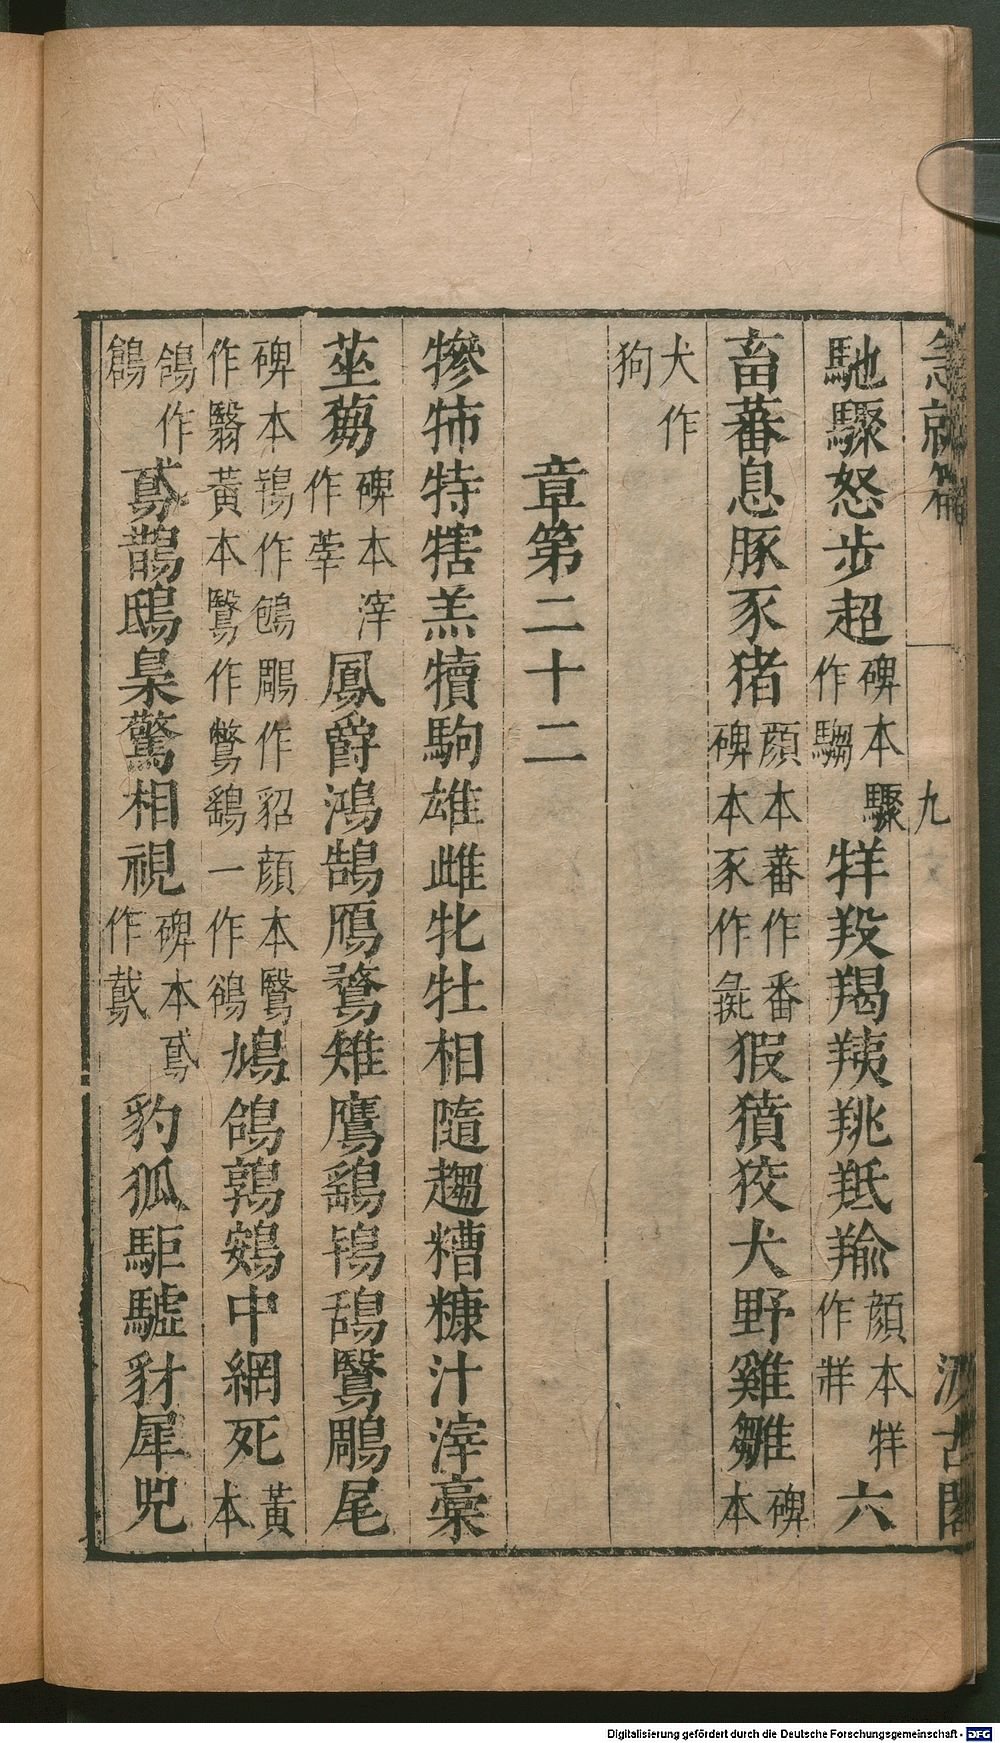 急就篇 九 汲古閣
馳驟怒步超碑本驟作騶牂羖羯羠羝羭顔本牂作牂六
畜蕃息豚豕猪顔本蕃作番碑本豕作彘豭豶狡犬野雞雛碑本
犬作狗
章第二十二
犙㹑特犗羔犢駒雄雌牝牡相隨趨糟糠汁滓稾
莝芻碑本滓作莘鳳爵鴻鵠鴈鶩雉鷹鷂鴇鴰鷖鵰尾
碑本鴇作鴝鵰作貂顔本鷖作翳黃本鷖作鷩鷂一作鵒鳩鴿鶉鴳中網死黃本
鴿作鶬
鳶鵲鴟梟驚相視碑本鳶作䳒豹狐駏驉豺犀兕